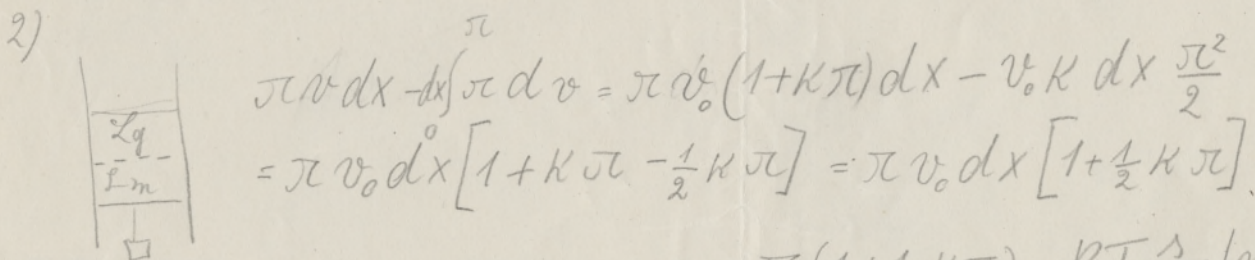 2)
π v dx - dx ∫₀^π π d v = π v₀ (1 + κ π) dx - v₀ κ dx π²/2
Lq
Lm
= π v₀ dx [1 + κ π - 1/2 κ π] = π v₀ dx [1 + 1/2 κ π].